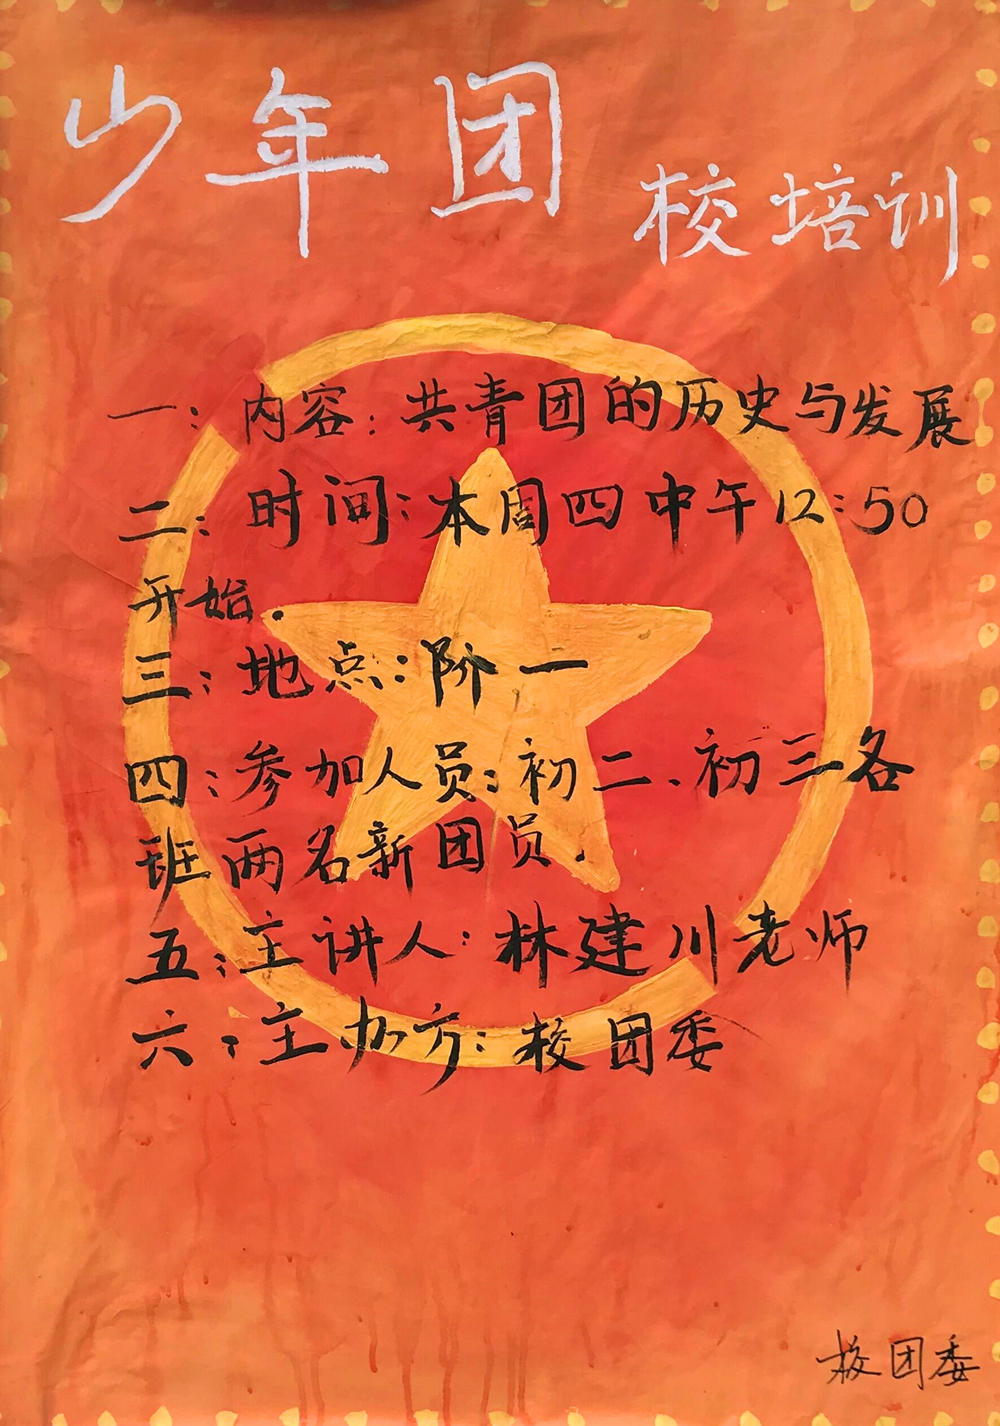 少年团校培训
一:内容:共青团的历史与发展
二:时间:本周四中午12:50
开始.
三:地点:阶一
四:参加人员:初二、初三各
班两名新团员.
五:主讲人:林建川老师
六:主办方:校团委
校团委